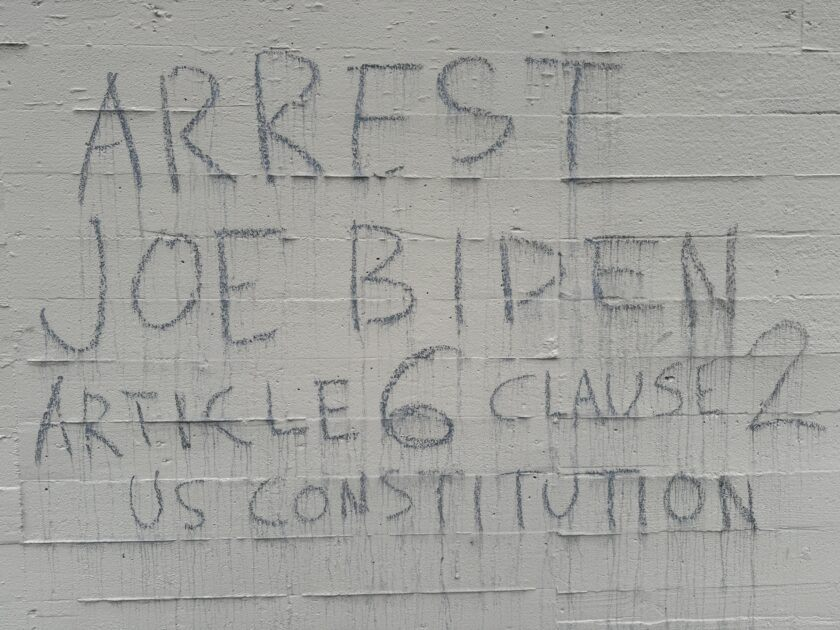 ARREST
JOE BIDEN
ARTICLE 6 CLAUSE 2
US CONSTITUTION